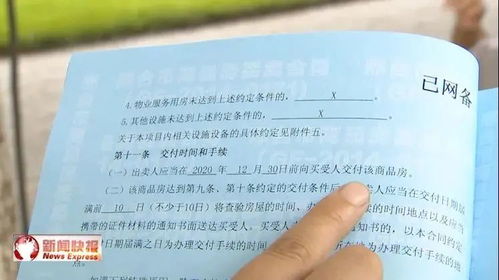 已网备
4.物业服务用房未达到上述约定条件的,X。
5.其他设施未达到上述约定条件的,X。
关于本项目内相关设施设备的具体约定见附件五。
第十一条 交付时间和手续
(一)出卖人应当在2020年12月30日前向买受人交付该商品房。
(二)该商品房达到第九条、第十条约定的交付条件后,卖人应当在交付日期届
满前10日(不少于10日)将查验房屋的时间、办续的时间地点以及应当
携带的证件材料的通知书面送达买受人。买受人未通知书的,以本合同约定
交付日期届满之日为办理交付手续的时间,所在地为办理交付手续的
新闻快报
News Express